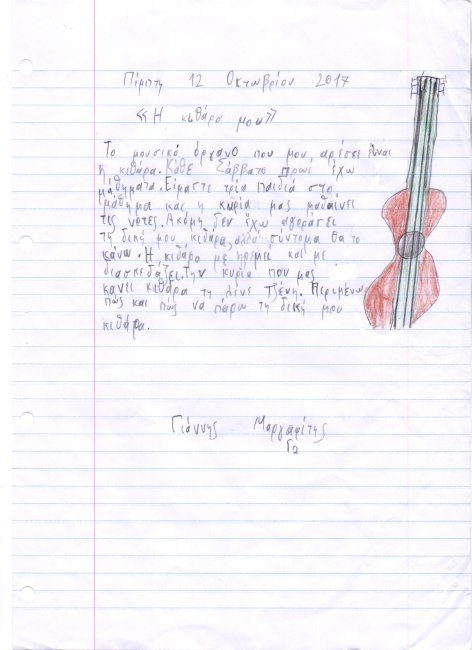 Πέμπτη 12 Οκτωβρίου 2017
«Η κιθάρα μου»
Το μουσικό όργανο που μου αρέσει είναι
η κιθάρα. Κάθε Σάββατο πρωί έχω
μάθηματα. Είμαστε τρία παιδιά στο
μάθημα και η κυρία μας μαθαίνει
τις νότες. Ακόμη δεν έχω αγοράσει
τη δική μου κιθάρα, αλλά σύντομα θα το
κάνω. Η κιθάρα με ηρεμεί και με
διασκεδάζει. Την κυρία που μας
κάνει κιθάρα τη λένε Τζένη. Περιμένω
πώς και πώς να πάρω τη δική μου
κιθάρα.
Γιάννης Μαργαρίτης
Γ2